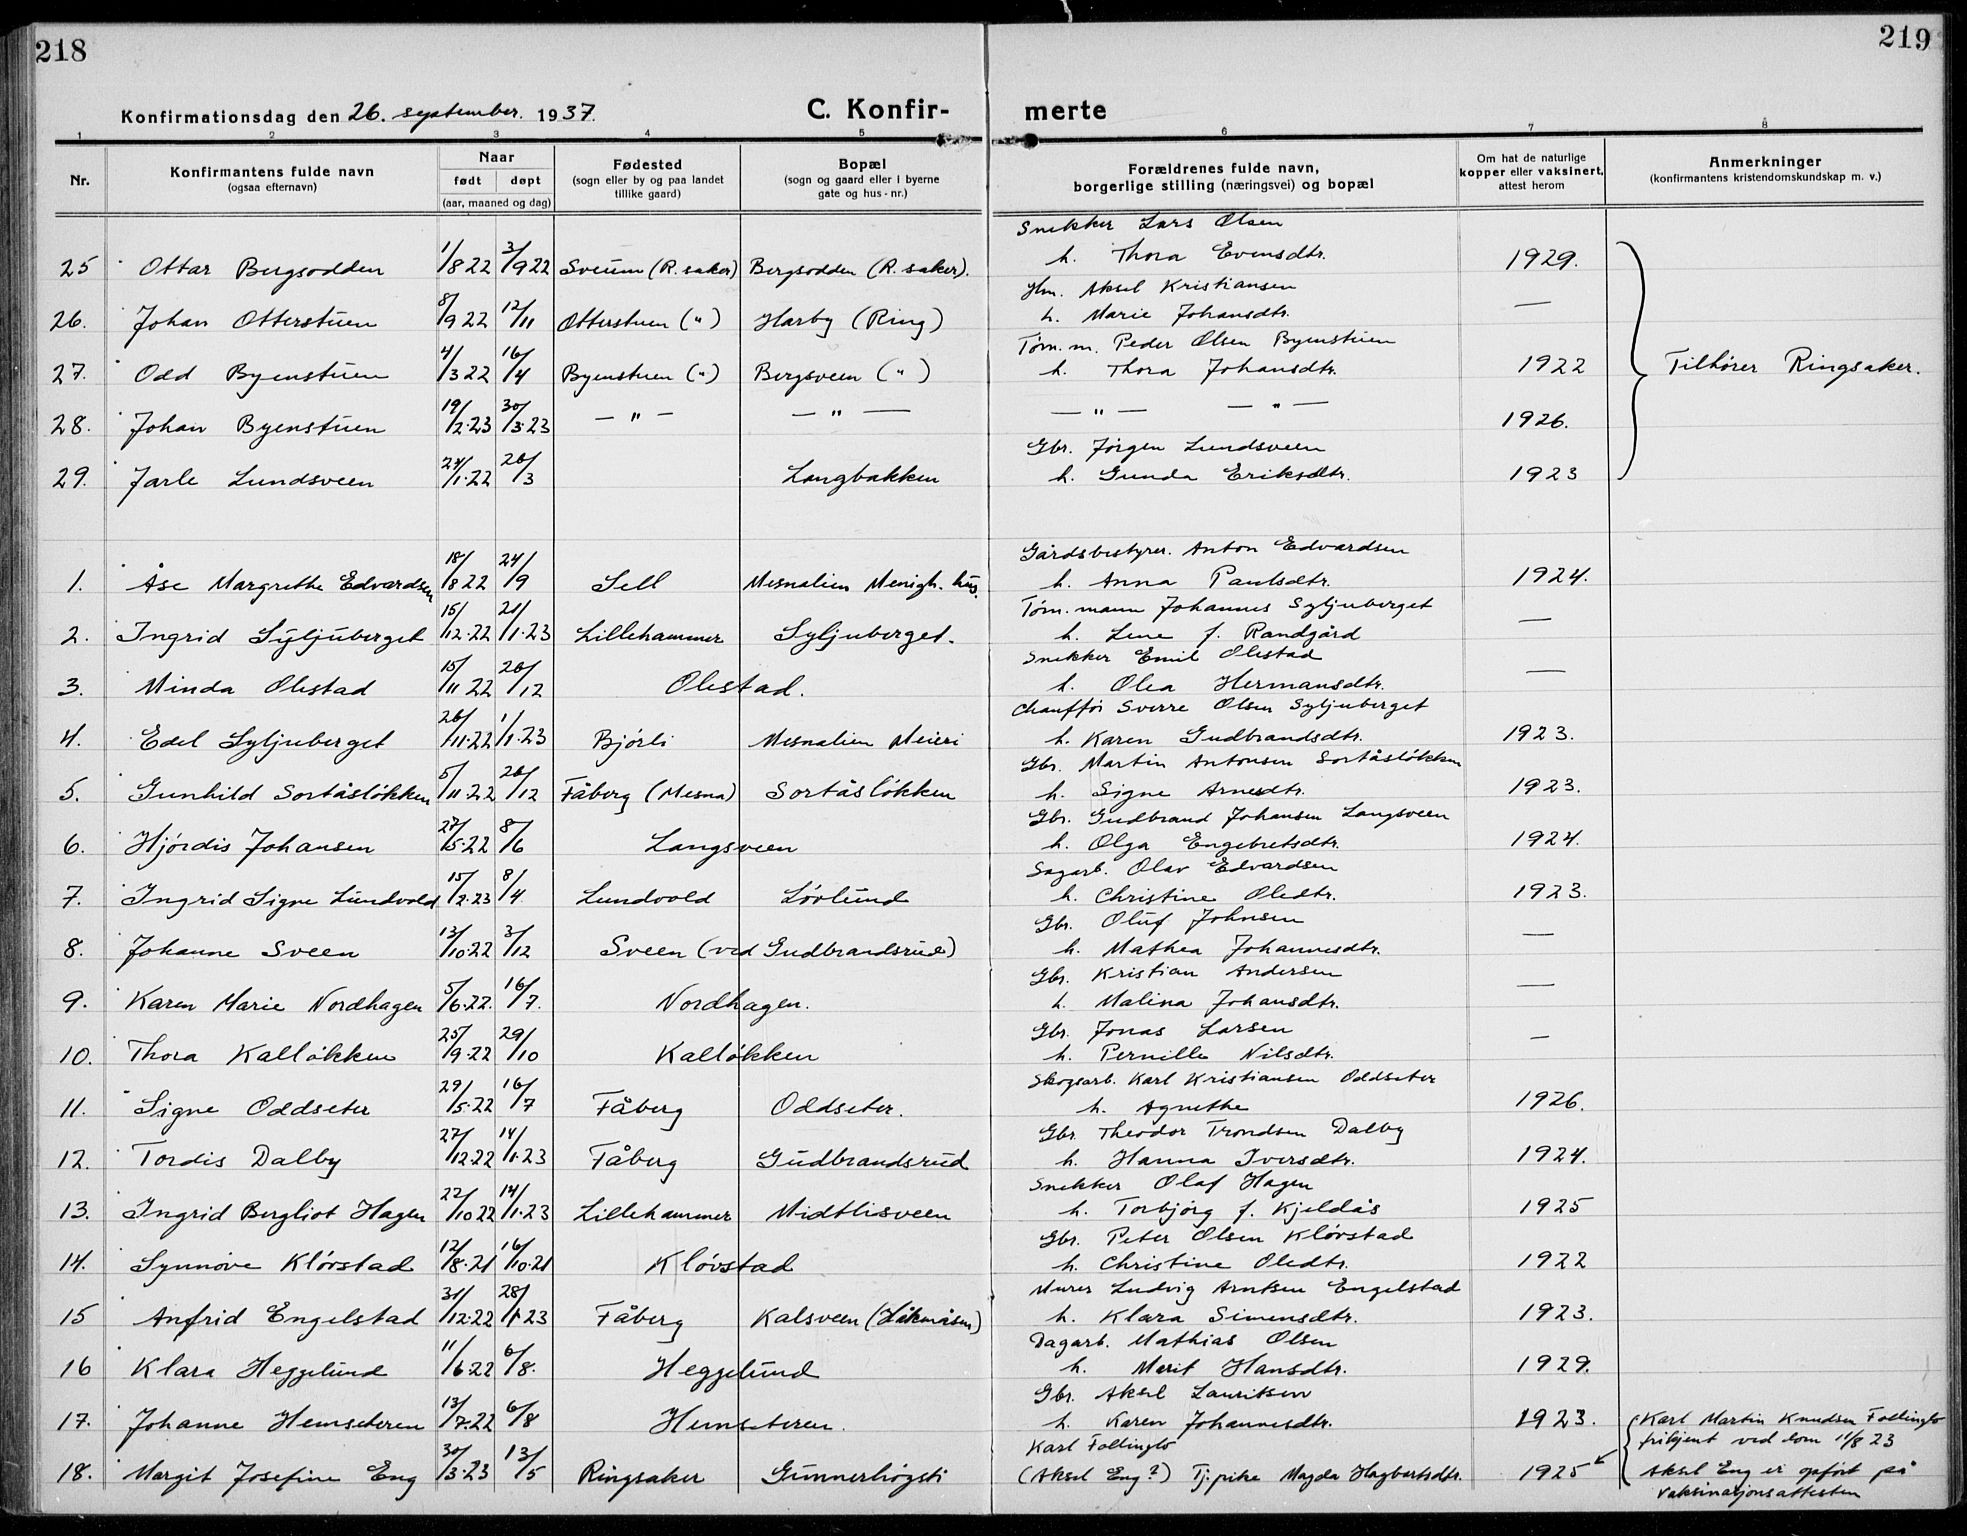 218
219
Konfirmationsdag den 26. september. 1937.
C. Konfir-
merte
1 2 3 4 5 6 7 8
Nr.
Konfirmantens fulde navn
(ogsaa efternavn)
Naar
født døpt
(aar, maaned og dag)
Fødested
(sogn eller by og paa landet
tillike gaard)
Bopæl
(sogn og gaard eller i byerne
gate og hus - nr.)
Forældrenes fulde navn,
borgerlige stilling (næringsvei) og bopæl
Om hat de naturlige
kopper eller vaksinert,
attest herom
Anmerkninger
(konfirmantens kristendomskundskap m. v.)
Snekker Lars Olsen
25 Ottar Bergsodden 1/8 22 3/9 22 Sveum (R.saker) Bergsodden (R.saker). h. Thora Evensdtr. 1929.
Hm. Aksel Kristiansen
26. Johan Otterstuen 8/9 22 12/11 Otterstuen (") Harby (Ring) h. Marie Johansdtr. —
Tøm.m. Peder Olsen Byenstuen
27. Odd Byenstuen 4/3 22 16/4 Byenstuen (") Bergsveen (") h. Thora Johansdtr. 1922 Tilhører Ringsaker.
28. Johan Byenstuen 19/2.23 30/3.23 — " — — " — — " — — " — 1926.
Gbr. Jørgen Lundsveen
29. Jarle Lundsveen 24/1.22 26/3 Langbakken h. Gunda Eriksdtr. 1923
Gårdsbestyrer. Anton Edvardsen
1. Åse Margrethe Edvardsen 18/8 22 24/9 Sell Mesnalien Menigh. hus. h. Anna Paulsdtr. 1924.
Tøm.mann Johannes Syljuberget
2. Ingrid Syljuberget 15/12.22 21/1.23 Lillehammer Syljuberget. h. Lene f. Randgård —
Snekker Emil Olestad
3. Minda Olestad 15/11 22 26/12 Olestad. h. Olea Hermansdtr. —
Chauffør Sverre Olsen Syljuberget
4. Edel Syljuberget 26/11.22 1/1.23 Bjørli Mesnalien Meieri h. Karen Gudbrandsdtr. 1923.
Gbr. Martin Antonsen Sortåsløkken
5. Gunhild Sortåsløkken 5/11 22 26/12 Fåberg (Mesna) Sortåsløkken h. Signe Arnesdtr. 1923.
Gbr. Gudbrand Johansen Langsveen
6. Hjørdis Johansen 27/5.22 8/6 Langsveen h. Olga Engebretsdtr. 1924.
Sagarb. Olav Edvardsen
7. Ingrid Signe Lundvold 15/2.23 8/4. Lundvold Løvlund h. Christine Oledtr. 1923.
Gbr. Oluf Johnsen
8. Johanne Sveen 13/10.22 3/12 Sveen (ved Gudbrandsrud) h. Mathea Johannesdtr. —
Gbr. Kristian Andersen
9. Karen Marie Nordhagen 5/6.22. 16/7. Nordhagen. h. Malina Johansdtr. —
Gbr. Jonas Larsen
10. Thora Kalløkken 25/9.22 29/10 Kalløkken h. Pernille Nilsdtr. —
Skogsarb. Karl Kristiansen Oddseter
11. Signe Oddseter 29/5.22 16/7 Fåberg Oddseter. h. Agnethe 1926.
Gbr. Theodor Trondsen Dalby
12. Tordis Dalby 27/12.22 14/1.23 Fåberg Gudbrandsrud h. Hanna Iversdtr. 1924.
Snekker Olaf Hagen
13. Ingrid Bergliot Hagen 22/10 22 14/1.23 Lillehammer Midtlisveen h. Torbjørg f. Kjeldås 1925
Gbr. Peter Olsen Kløvstad
14. Synnøve Kløvstad 12/8.21 16/10.21 Kløvstad h. Christine Oledtr. 1922
Murer Ludvig Arntsen Engelstad
15 Anfrid Engelstad 31/12.22 28/1 23 Fåberg Kalsveen h. Klara Simensdtr. 1923.
Dagarb. Mathias Olsen
16 Klara Heggelund 11/6.22 6/8. Heggelund h. Marit Hansdtr. 1929.
Gbr. Aksel Lauritsen
17. Johanne Hemseteren 13/7.22 6/8 Hemseteren. h. Karen Johannesdtr. 1923. Karl Martin Knudsen Follinglo
Karl Follinglo frikjent ved dom 11/8 23
18. Margit Josefine Eng 30/3.23 13/5 Ringsaker Gunnerhøgsti (Aksel Eng?) Tj.pike Magda Hagbartsdtr. 1925 Aksel Eng er opført på
vaksinasjonsattesten